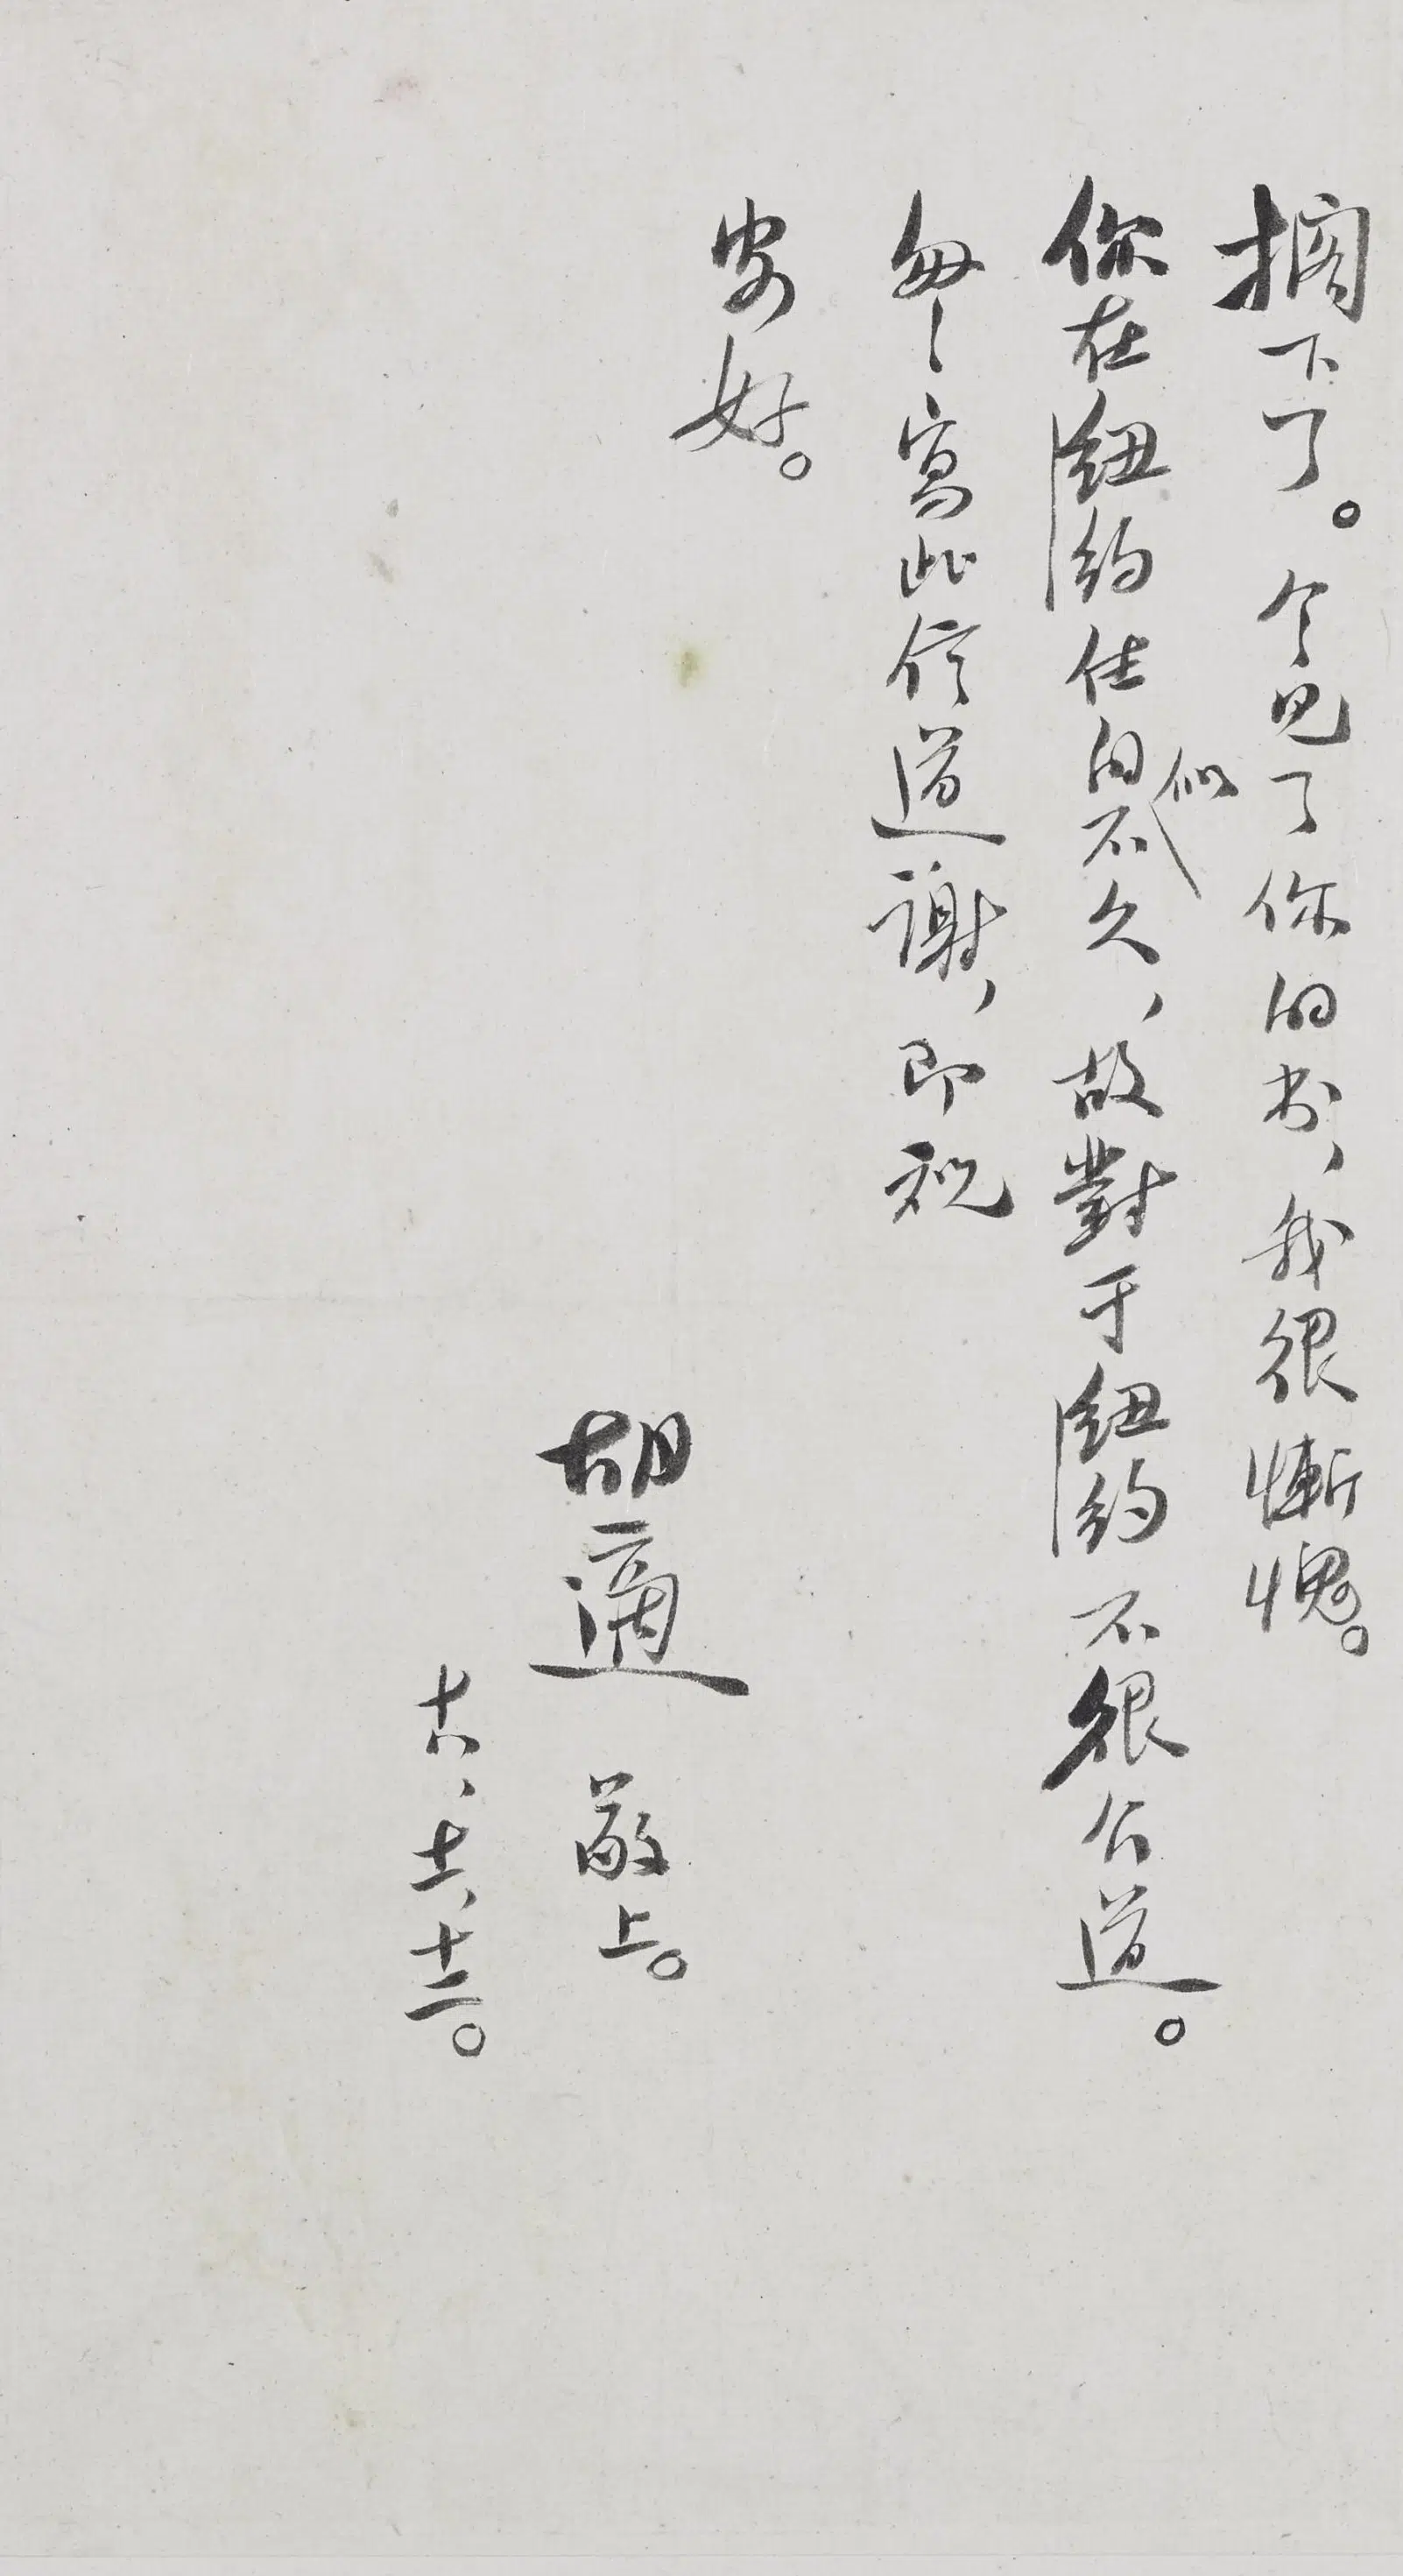 擱下了。今見了你的書，我很慚愧。
你在紐約住的似不久，故對于紐約不很公道。
匆匆寫此信道謝，即祝
安好。
胡適 敬上。
十八、十一、十三。